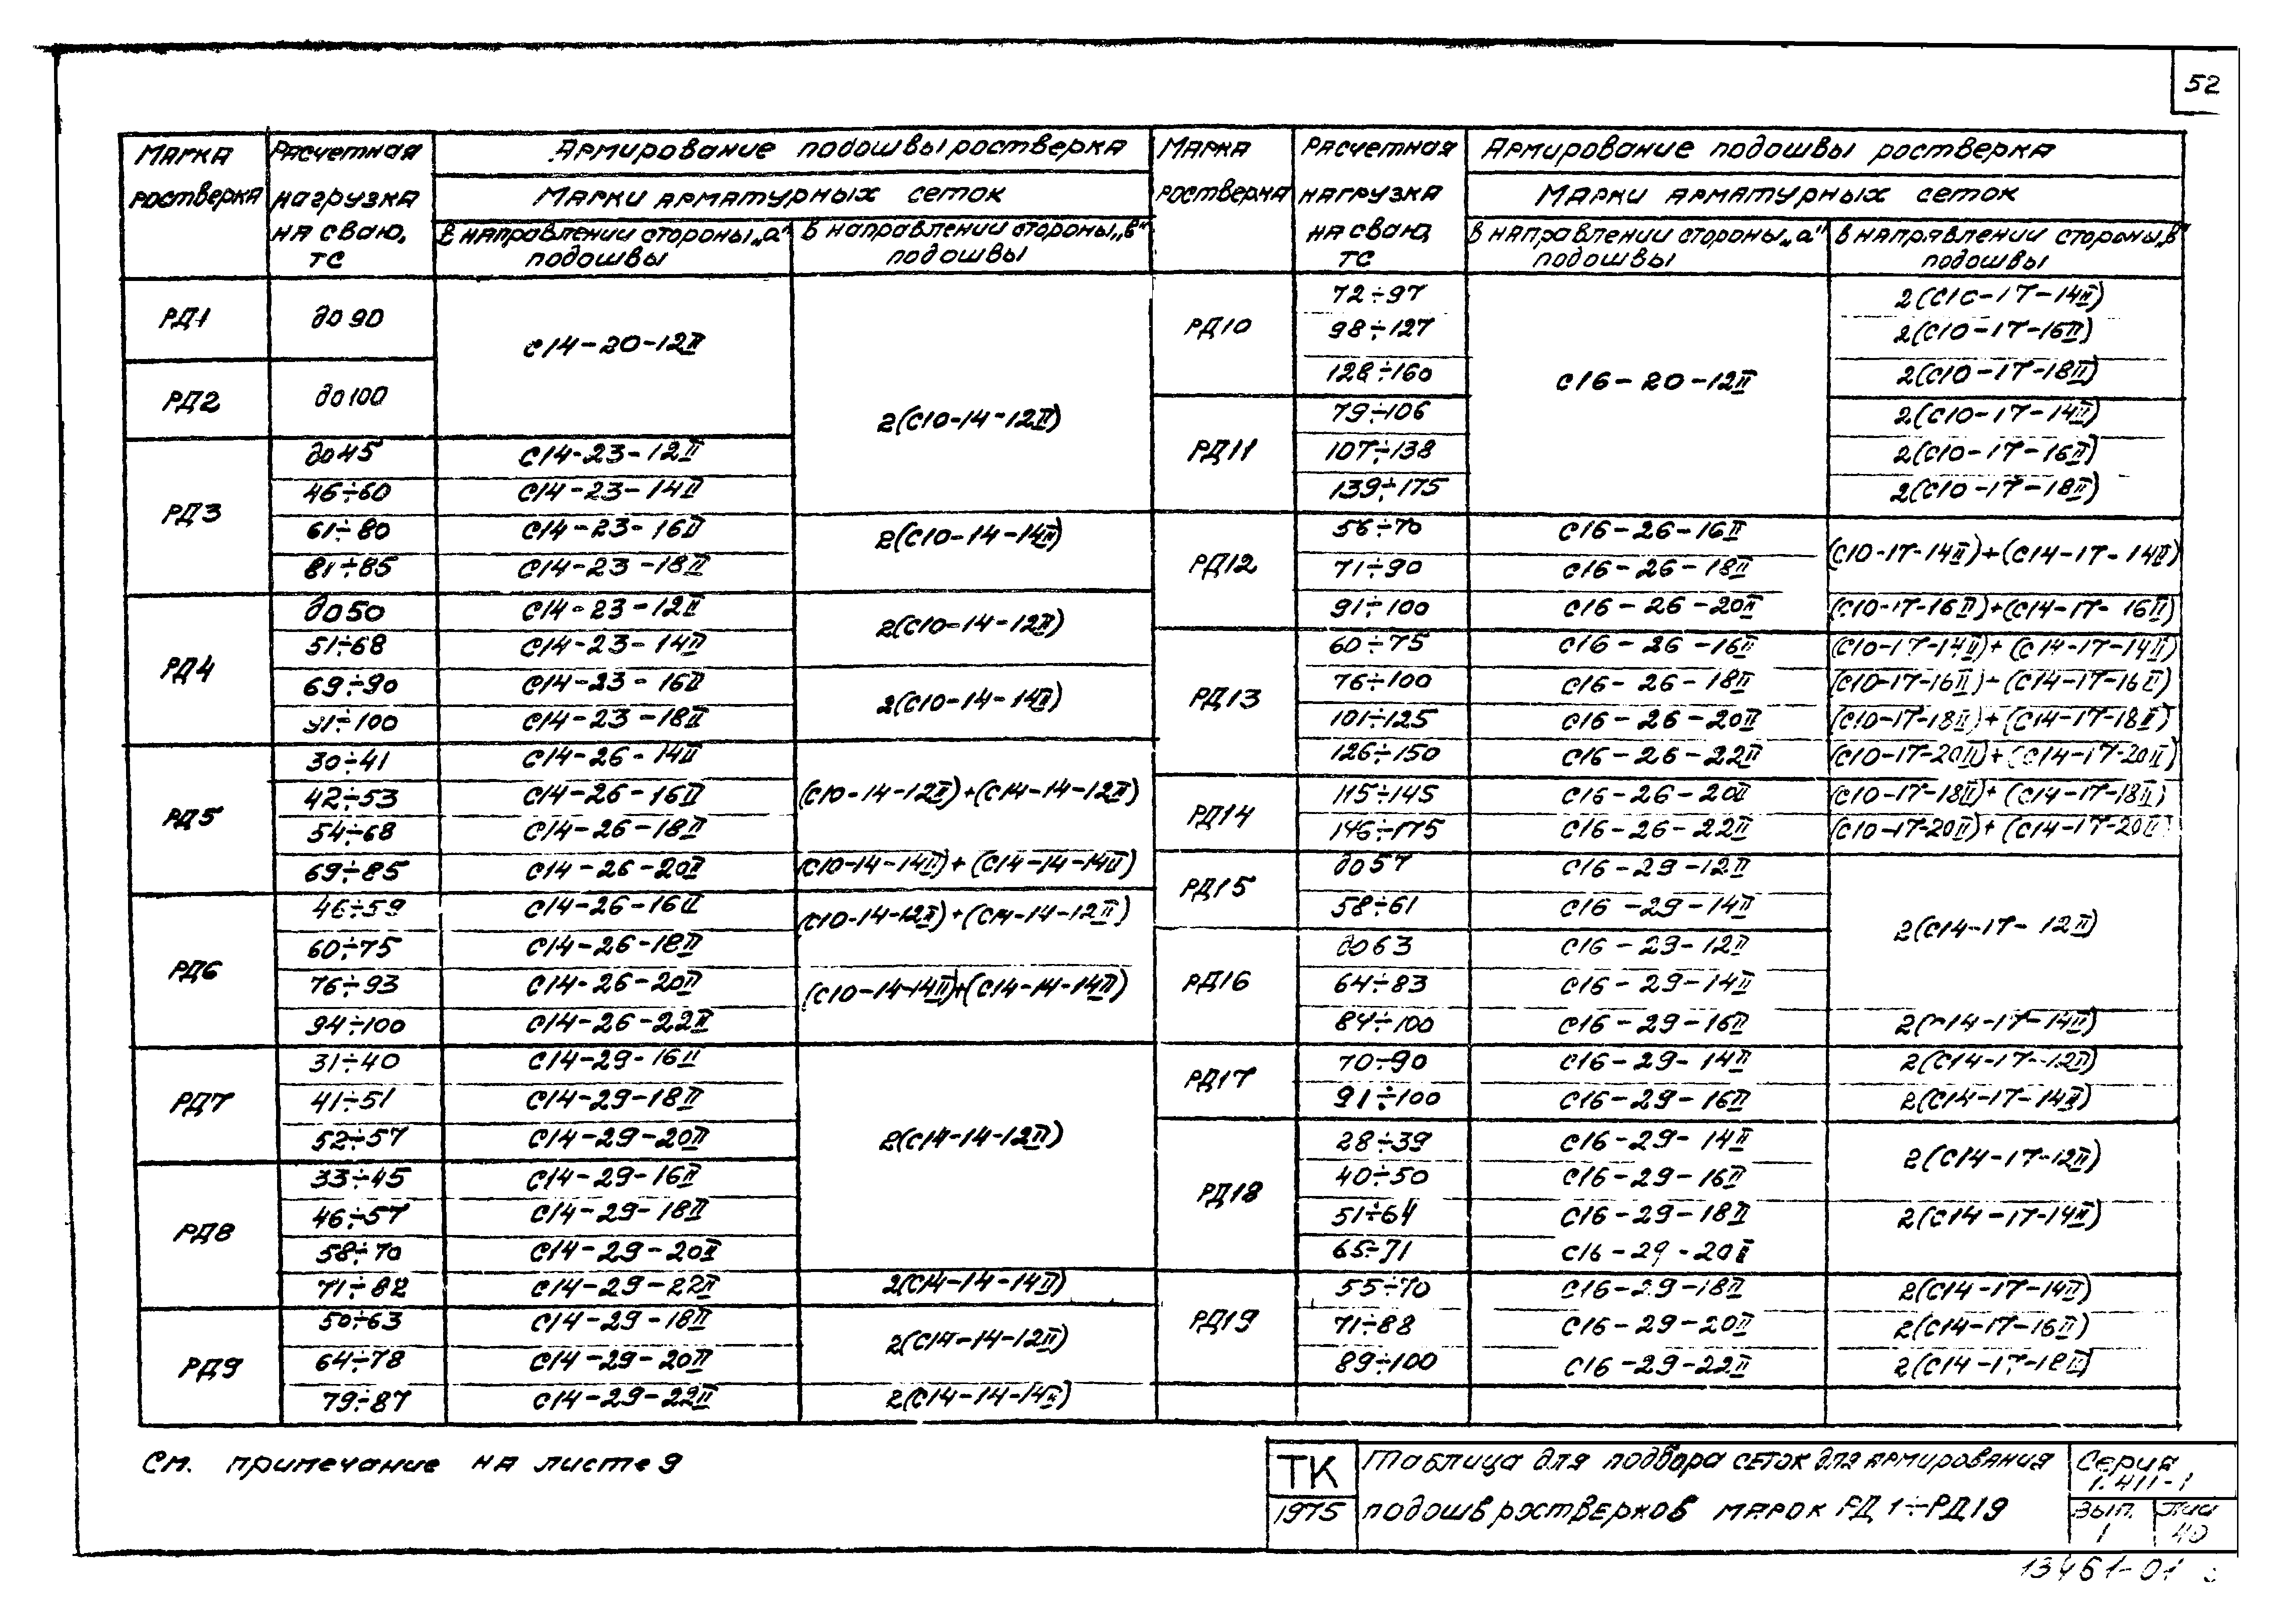 52
Марка ростверка | Расчетная нагрузка на сваю, тс | Армирование подошвы ростверка
Марки арматурных сеток
в направлении стороны „а" подошвы | в направлении стороны „в" подошвы
РД1 | до 90 | С14-20-12II | 2(С10-14-12II)
РД2 | до 100
РД3 | до 45 | С14-23-12II
46÷60 | С14-23-14II
61÷80 | С14-23-16II | 2(С10-14-14II)
81÷85 | С14-23-18II
РД4 | до 50 | С14-23-12II | 2(С10-14-12II)
51÷68 | С14-23-14II
69÷90 | С14-23-16II | 2(С10-14-14II)
91÷100 | С14-23-18II
РД5 | 30÷41 | С14-26-14II | (С10-14-12II)+(С14-14-12II)
42÷53 | С14-26-16II
54÷68 | С14-26-18II
69÷85 | С14-26-20II | (С10-14-14II)+(С14-14-14II)
РД6 | 46÷59 | С14-26-16II | (С10-14-12II)+(С14-14-12II)
60÷75 | С14-26-18II
76÷93 | С14-26-20II | (С10-14-14II)+(С14-14-14II)
94÷100 | С14-26-22II
РД7 | 31÷40 | С14-29-16II | 2(С14-14-12II)
41÷51 | С14-29-18II
52÷57 | С14-29-20II
РД8 | 33÷45 | С14-29-16II
46÷57 | С14-29-18II
58÷70 | С14-29-20II
71÷82 | С14-29-22II | 2(С14-14-14II)
РД9 | 50÷63 | С14-29-18II | 2(С14-14-12II)
64÷78 | С14-29-20II
79÷87 | С14-29-22II | 2(С14-14-14II)
Марка ростверка | Расчетная нагрузка на сваю, тс | Армирование подошвы ростверка
Марки арматурных сеток
в направлении стороны „а" подошвы | в направлении стороны „в" подошвы
РД10 | 72÷97 | С16-20-12II | 2(С10-17-14II)
98÷127 | 2(С10-17-16II)
128÷160 | 2(С10-17-18II)
РД11 | 79÷106 | 2(С10-17-14II)
107÷138 | 2(С10-17-16II)
139÷175 | 2(С10-17-18II)
РД12 | 56÷70 | С16-26-16II | (С10-17-14II)+(С14-17-14II)
71÷90 | С16-26-18II
91÷100 | С16-26-20II | (С10-17-16II)+(С14-17-16II)
РД13 | 60÷75 | С16-26-16II | (С10-17-14II)+(С14-17-14II)
76÷100 | С16-26-18II | (С10-17-16II)+(С14-17-16II)
101÷125 | С16-26-20II | (С10-17-18II)+(С14-17-18II)
126÷150 | С16-26-22II | (С10-17-20II)+(С14-17-20II)
РД14 | 115÷145 | С16-26-20II | (С10-17-18II)+(С14-17-18II)
146÷175 | С16-26-22II | (С10-17-20II)+(С14-17-20II)
РД15 | до 57 | С16-29-12II | 2(С14-17-12II)
58÷61 | С16-29-14II
РД16 | до 63 | С16-29-12II
64÷83 | С16-29-14II
84÷100 | С16-29-16II | 2(С14-17-14II)
РД17 | 70÷90 | С16-29-14II | 2(С14-17-12II)
91÷100 | С16-29-16II | 2(С14-17-14II)
РД18 | 28÷39 | С16-29-14II | 2(С14-17-12II)
40÷50 | С16-29-16II
51÷64 | С16-29-18II | 2(С14-17-14II)
65÷71 | С16-29-20II
РД19 | 55÷70 | С16-29-18II | 2(С14-17-14II)
71÷88 | С16-29-20II | 2(С14-17-16II)
89÷100 | С16-29-22II | 2(С14-17-18II)
См. примечание на листе 9
ТК
1975
Таблица для подбора сеток для армирования
подошв ростверков марок РД1÷РД19
Серия
1.411-1
Вып. 1
Лист 40
13461-01